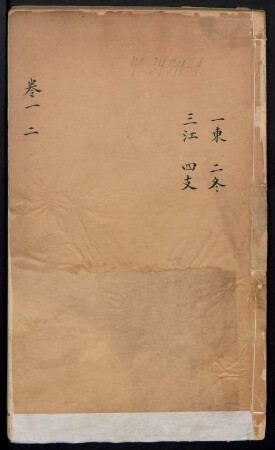 一東 二冬
三江 四支
卷一 二